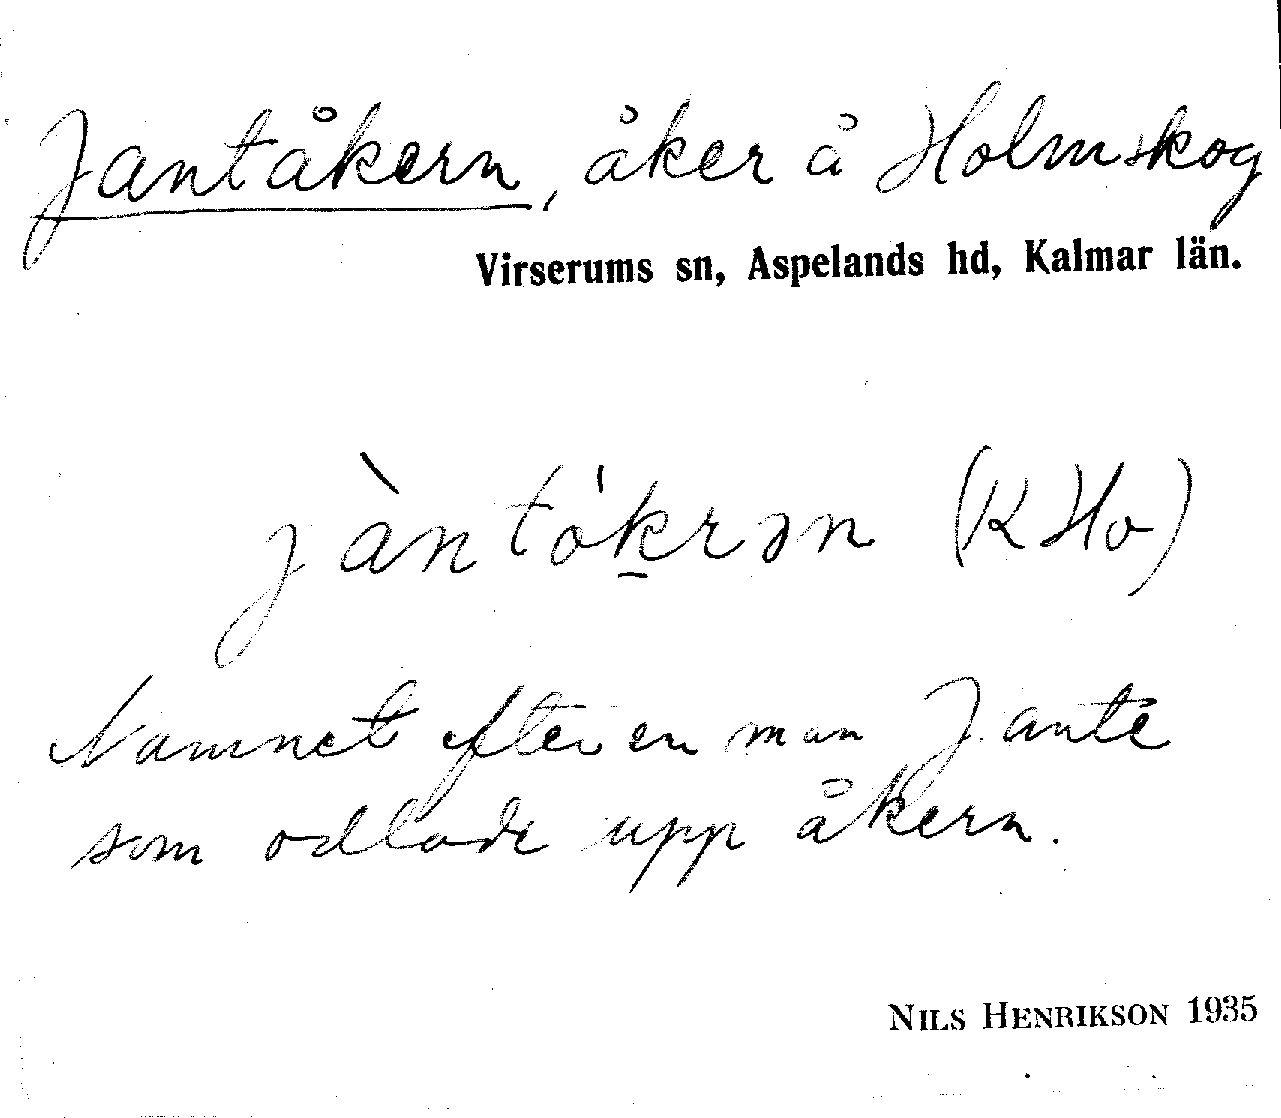 Jantåkern, åker å Holmskog
Virserums sn, Aspelands hd, Kalmar län.
jàntók̠rən (K Ho)
Namnet efter en man Jante
som odlade upp åkern.
NILS HENRIKSON 1935